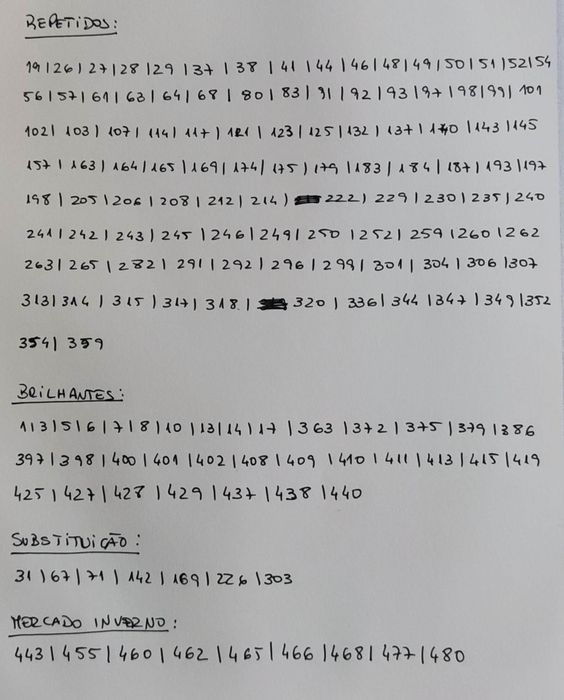 REPETIDOS:
19|26|27|28|29|37|38|41|44|46|48|49|50|51|52|54
56|57|61|63|64|68|80|83|91|92|93|97|98|99|101
102|103|107|114|117|121|123|125|132|137|140|143|145
157|163|164|165|169|174|175|179|183|184|187|193|197
198|205|206|208|212|214|222|229|230|235|240
241|242|243|245|246|249|250|252|259|260|262
263|265|282|291|292|296|299|301|304|306|307
313|314|315|317|318|320|336|344|347|349|352
354|359
BRILHANTES:
1|3|5|6|7|8|10|13|14|17|363|372|375|379|386
397|398|400|401|402|408|409|410|411|413|415|419
425|427|428|429|437|438|440
SUBSTITUIÇÃO:
31|67|71|142|169|226|303
MERCADO INVERNO:
443|455|460|462|465|466|468|477|480